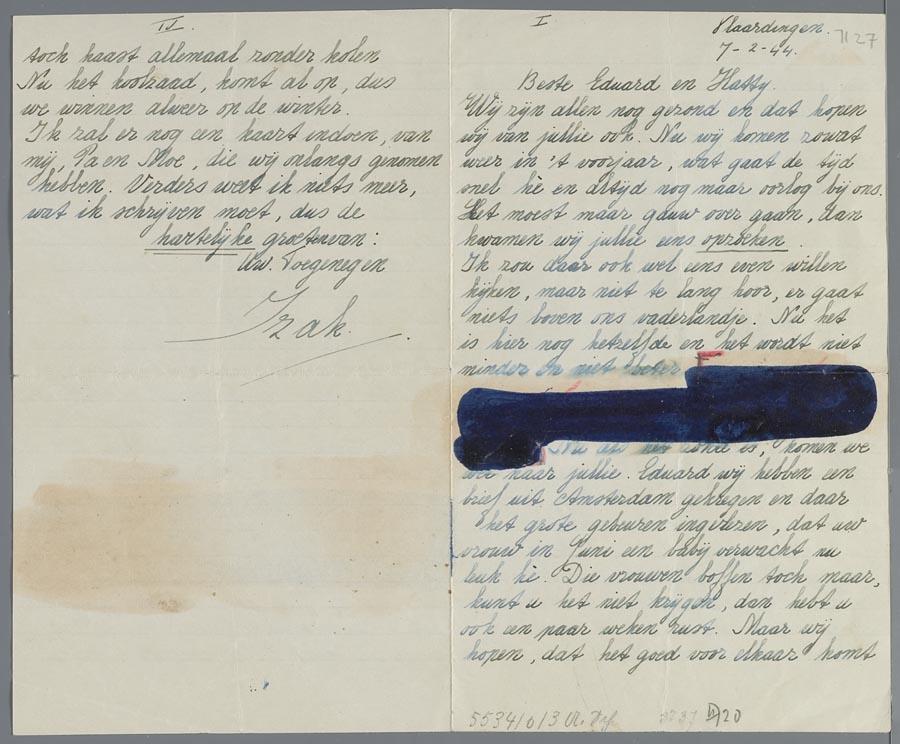 I
Vlaardingen.
7-2-44.
7127
Beste Eduard en Hatty.
Wij zijn allen nog gezond en dat hopen
wij van jullie ook. Nu wij komen zowat
weer in 't voorjaar, wat gaat de tijd
snel hè en altijd nog maar oorlog bij ons.
Het moest maar gauw over gaan, dan
kwamen wij jullie eens opzoeken.
Ik zou daar ook wel eens even willen
kijken, maar niet te lang hoor, er gaat
niets boven ons vaderlandje. Nu het
is hier nog hetzelfde en het wordt niet
minder en niet beter
Nu als het zover is, komen we
naar jullie. Eduard wij hebben een
brief uit Amsterdam gekregen en daar
het grote gebeuren ingelezen, dat uw
vrouw in Juni een babij verwacht nu
leuk hè. Die vrouwen boffen toch maar,
kunt u het niet krijgen, dan hebt u
ook een paar weken rust. Maar wij
hopen, dat het goed voor elkaar komt
55341013
20
II.
toch haast allemaal zonder kolen
Nu het koolzaad, komt al op, dus
we winnen alweer op de winter.
Ik zal er nog een kaart indoen, van
mij, Pa en Moe, die wij onlangs genomen
hebben. Verders weet ik niets meer,
wat ik schrijven moet, dus de
hartelijke groeten van:
Uw. Toegenegen
Izak.